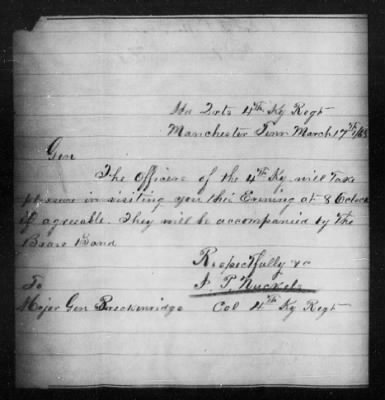 Hd Qrts 4th Ky Regt
Manchester Tenn March 17th/63
Gen
The Officers of the 4th Ky will take
pleasure in visiting you this Evening at 8 Oclock
if agreeable. They will be accompanied by the
Brass Band
Respectfully &c
To J. P. Nuckols
Major Gen Breckenridge Col 4th Ky Regt